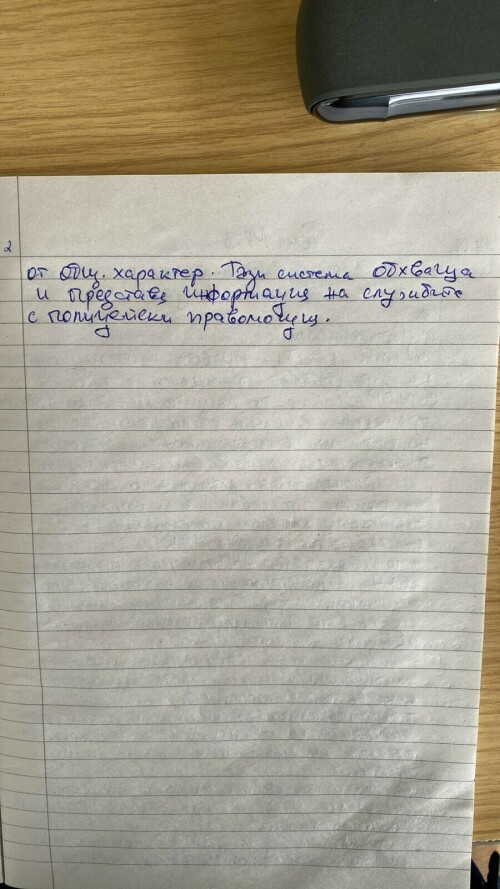 2
от общ. характер. Тази система обхваща
и представя информация на службите
с полицейски правомощ.